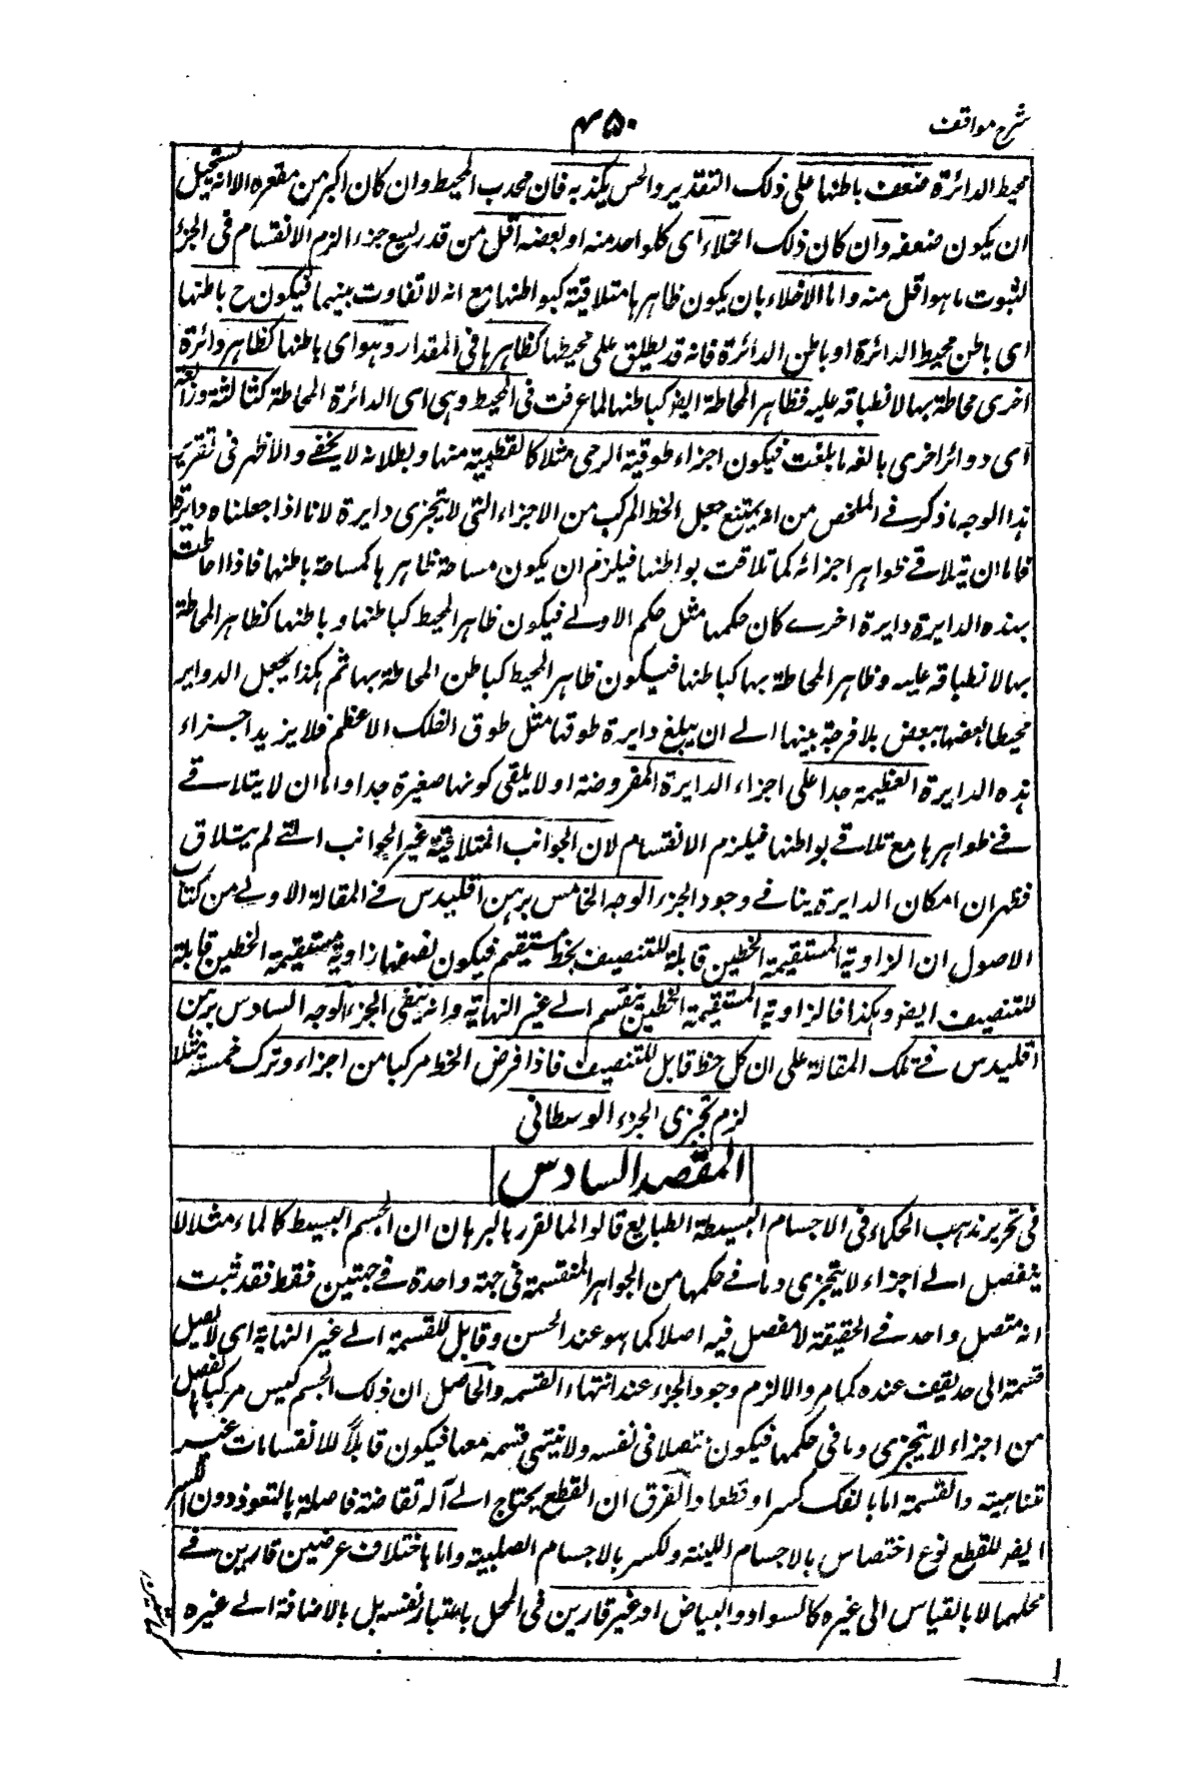 شرح مواقف
۴۵۰
محيط الدائرة ضعف باطنها على ذلك التقدير والحس يكذبه فان محدب المحيط وان كان اكبر من مقعره الا انه يستحيل
ان يكون ضعفه وان كان ذلك الخلاء اى كل واحد منه او بعضه اقل من قدر يسع جزء الزم الانقسام فى الجزء
لثبوت ما هو اقل منه واما الاخلاء بان يكون ظاهرها متلاقية كبواطنها مع انه لا تفاوت بينهما فيكون ح باطنها
اى باطن محيط الدائرة او باطن الدائرة فانه قد يطلق على محيطها كظاهرها فى المقدار وهو اى باطنها كظاهر دائرة
اخرى محاطة بها لانطباقه عليه فظاهر المحاطة ايضا كباطنها لما عرفت فى المحيط وهى اى الدائرة المحاطة كثالثة ورابعة
اى دوائر اخرى بالغة ما بلغت فيكون اجزاء طوقية الرحى مثلا كالقطبية منها وبطلانه لا يخفے والاظهر فى تقرير
هذا الوجه ما ذكر فے الملخص من انه يمتنع جعل الخط المركب من الاجزاء التى لا يتجزى دايرة لانا اذا جعلناه دايرة
فاما ان يتلاقے ظواهر اجزائه كما تلاقت بواطنها فيلزم ان يكون مساحة ظاهرها كمساحة باطنها فاذا احاطت
بهذه الدايرة دايرة اخرے كان حكمها مثل حكم الاولے فيكون ظاهر المحيط كباطنها وباطنها كظاهر المحاطة
بها لانطباقه عليه وظاهر المحاطة بها كباطنها فيكون ظاهر المحيط كباطن المحاطة بها ثم هكذا يجعل الدواير
محيطا بعضها ببعض بلا فرجة بينها الے ان يبلغ دايرة طوقها مثل طوق الفلك الاعظم فلا يزيد اجزاء
هذه الدايرة العظيمة جدا على اجزاء الدايرة المفروضة اولا يلقى كونها صغيرة جدا واما ان لا يتلاقے
فے ظواهرها مع تلاقے بواطنها فيلزم الانقسام لان الجوانب المتلاقية غير الجوانب التے لم يتلاق
فظهر ان امكان الدايرة ينافے وجود الجزء الوجه الخامس برهن اقليدس فے المقالة الاولے من كتاب
الاصول ان الزاوية المستقيمة الخطين قابلة للتنصيف بخط مستقيم فيكون نصفها زاوية مستقيمة الخطين قابلة
للتنصيف ايضا وهكذا فالزاوية المستقيمة الخطين ينقسم الے غير النهاية وانه ينفى الجزء الوجه السادس برهن
اقليدس فے تلك المقالة على ان كل خط قابل للتنصيف فاذا فرض الخط مركبا من اجزاء وترك خمسة مثلا
لزم تجزى الجزء الوسطانى
المقصد السادس
فى تحرير مذهب الحكماء فى الاجسام البسيطة الطبايع قالوا لما تقرر بالبرهان ان الجسم البسيط كالماء مثلا لا
ينفصل الے اجزاء لا يتجزى وما فے حكمها من الجواهر المنقسمة فى جهة واحدة فے جهتين فقط فقد ثبت
انه متصل واحد فے الحقيقة لا مفصل فيه اصلا كما هو عند الحس وقابل للقسمة الے غير النهاية اى لا يصل
قسمة الى حد يقف عنده كما مر والا لزم وجود الجزء عند انتهاء القسمه والحاصل ان ذلك الجسم ليس مركبا بالفعل
من اجزاء لا يتجزى وما فى حكمها فيكون متصلا فى نفسه ولا ينتهى قسمه معها فيكون قابلاً للانقسامات غير
متناهيته والقسمة اما بالفك كسرا وقطعا والفرق ان القطع يحتاج الے آلة نفاذة فاصلة بالنفوذ دون الكسر
ايضا للقطع نوع اختصاص بالاجسام اللينة والكسر بالاجسام الصلبية واما باختلاف عرضين قارين فے
محلهما لا بالقياس الى غيره كالسواد والبياض او غير قارين فى المحل باعتبار نفسه بل بالاضافة الے غيره